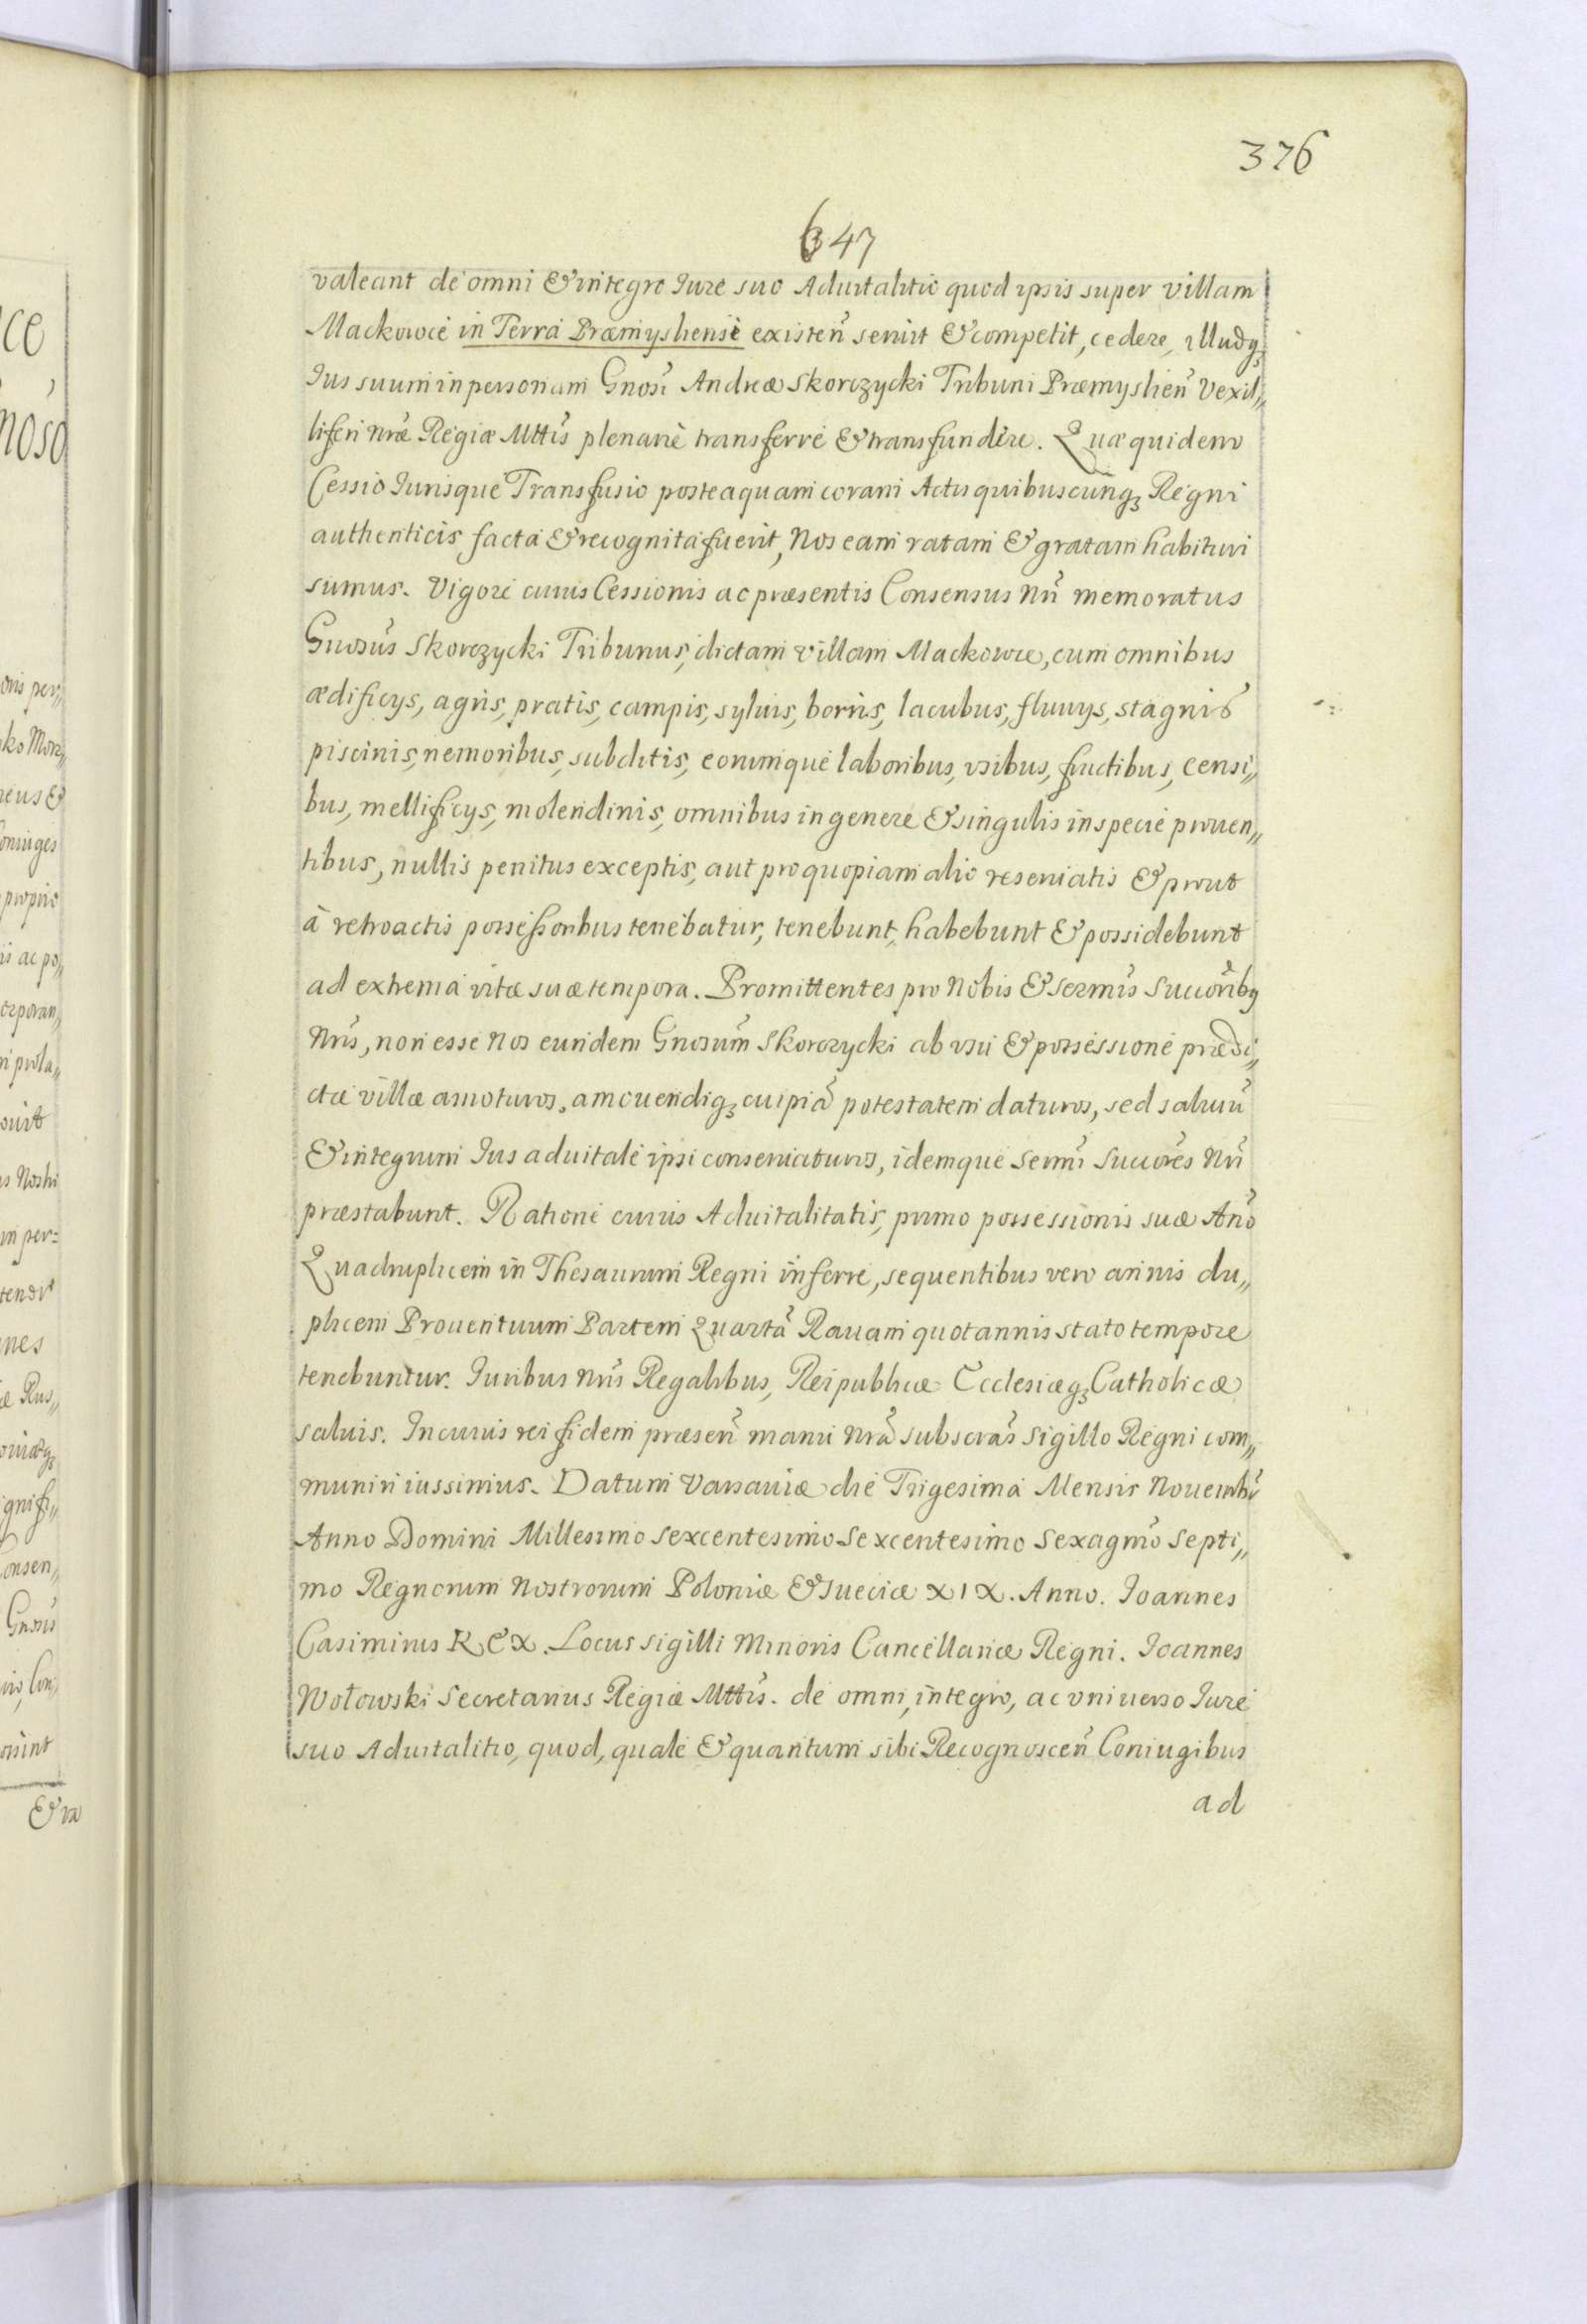 376
647
valeant de omni & integro Iure suo Aduitalitio quod ipsis super villam
Mackowce in Terra Præmysliensi existeñ seruit & competit, cedere, illudq₃
Ius suum in personam Gnosi Andreæ Skorczycki Tribuni Præmyslieñ Vexil„
liferi nræ Regiæ Mttis plenarie transferre & transfundere. Quæ quidem
Cessio Iurisque Transfusio posteaquam coram Actis quibuscunq₃ Regni
authenticis facta & recognita fuerit, Nos eam ratam & gratam habituri
sumus. Vigore cuius Cessionis ac præsentis Consensus Nri memoratus
Gnosus Skorczycki Tribunus, dictam villam Mackowce, cum omnibus
ædificys, agris, pratis, campis, syluis, borris, lacubus, fluuys, stagnis
piscinis, nemoribus, subditis, eorumque laboribus, vsibus, fructibus, censi„
bus, mellificys, molendinis, omnibus in genere & singulis in specie prouen„
tibus, nullis penitus exceptis, aut pro quopiam alio reseruatis & prout
à retroactis possessoribus tenebatur, tenebunt, habebunt & possidebunt
ad extrema vitæ suæ tempora. Promittentes pro Nobis & Sermis Succoribq
Nris, non esse Nos eundem Gnosum Skorczycki ab vsu & possessione prædi„
ctæ villæ amoturos, amouendiq₃ cuipiã potestatem daturos, sed saluũ
& integrum Ius aduitale ipsi conseruaturos, idemque Sermi Succores Nri
præstabunt. Ratione cuius Aduitalitatis, primo possessionis suæ Anõ
Quadruplicem in Thesaurum Regni inferre, sequentibus vero annis du„
plicem Prouentuum Partem Quartã Rauam quotannis stato tempore
tenebuntur. Iuribus Nris Regalibus, Reipublicæ Ecclesiæq₃ Catholicæ
saluis. In cuius rei fidem præseñ manu nrã subscras Sigillo Regni com„
muniri iussimus. Datum Varsauiæ die Trigesima Mensis Nouembr
Anno Domini Millesimo Sexcentesimo Sexcentesimo Sexagmo Septi„
mo Regnorum Nostrorum Poloniæ & Sueciæ XIX. Anno. Ioannes
Casimirus REX. Locus sigilli Minoris Cancellariæ Regni. Ioannes
Wołowski Secretarius Regiæ Mttis. de omni, integro, ac vniuerso Iure
suo Aduitalitio, quod, quale & quantum sibi Recognosceñ Coniugibus
ad